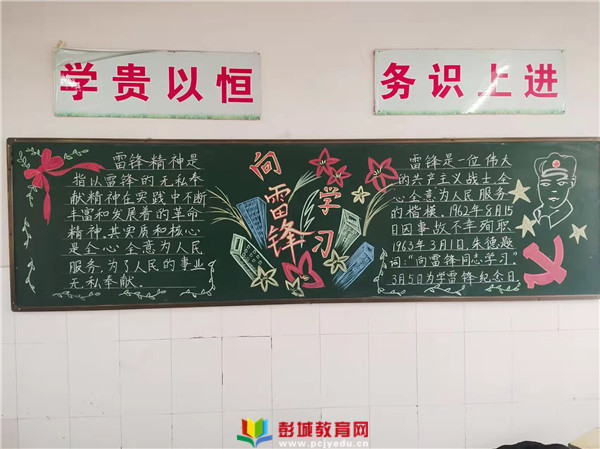 学贵以恒
务识上进
雷锋精神是
指以雷锋的无私奉
献精神在实践中不断
丰富和发展着的革命
精神,其实质和核心
是全心全意为人民
服务,为了人民的事业
无私奉献。
向雷锋
学习
雷锋是一位伟大
的共产主义战士全
心全意为人民服务
的楷模。1962年8月15
日因事故不幸殉职
1963年3月1日,朱德题
词:“向雷锋同志学习”
3月5日为学雷锋纪念日
彭城教育网
www.pcjyedu.cn